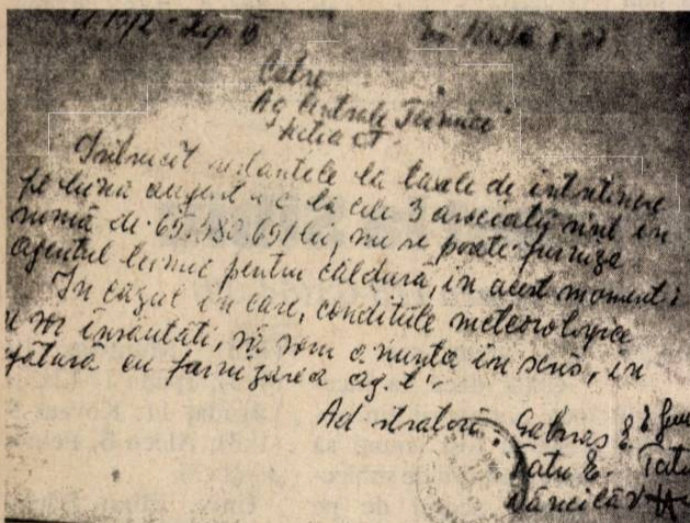 Către
Ag Centrale Termice
Întrucît restantele la taxele de intretinere
pe luna august a c la cele 3 asociatii sint in
sumă de 65.980.691 lei, nu se poate furniza
agentul termic pentru căldură, in acest moment.
In cazul in care, conditiile meteorologice
se vor inrautati, vă vom anunta in scris, in
legătură cu furnizarea ag. t.
Ad-stratori: Gabras E.
Tatu E. Tatu
Dăncilă V